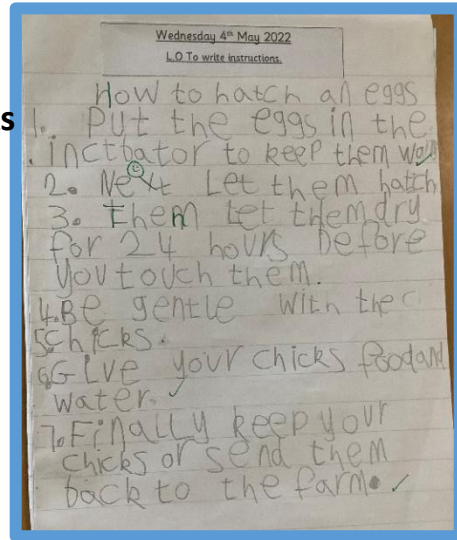 s
Wednesday 4th May 2022
L.O To write instructions.
How to hatch an eggs
1. Put the eggs in the
inctbator to keep them
2. Next Let them hatch
3. Them let them dry
for 24 hours before
you touch them.
4. Be gentle with the c
5 chicks.
6 Give your chicks food and
water.
7. Finally keep your
chicks or send them
back to the farm.